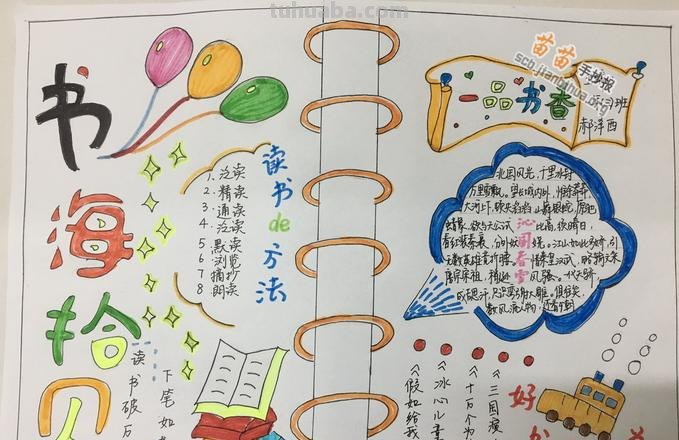 tuhuaba.com
书海拾贝
读书de方法
1. 泛读
2. 精读
3. 通读
4.
5 默读
6 浏览
7 摘抄
8 朗读
读书破万
下笔如
苗苗手抄报
scb.jiantuhua.org
一品书香
班
郝泽西
北国风光，千里冰封
万里雪飘。望长城内外，惟余莽莽
大河上下，顿失滔滔 山舞银蛇，原驰
蜡象，欲与天公试比高，须晴日，
看红装素裹，分外妖娆。江山如此多娇，引
无数英雄竞折腰。惜秦皇汉武，略输文采
唐宗宋祖，稍逊风骚。一代天骄，
成吉思汗，只识弯弓射大雕。俱往矣
数风流人物，还看今朝
沁园春雪
《三国演
《十万个为
《冰心儿童
《假如给我
好